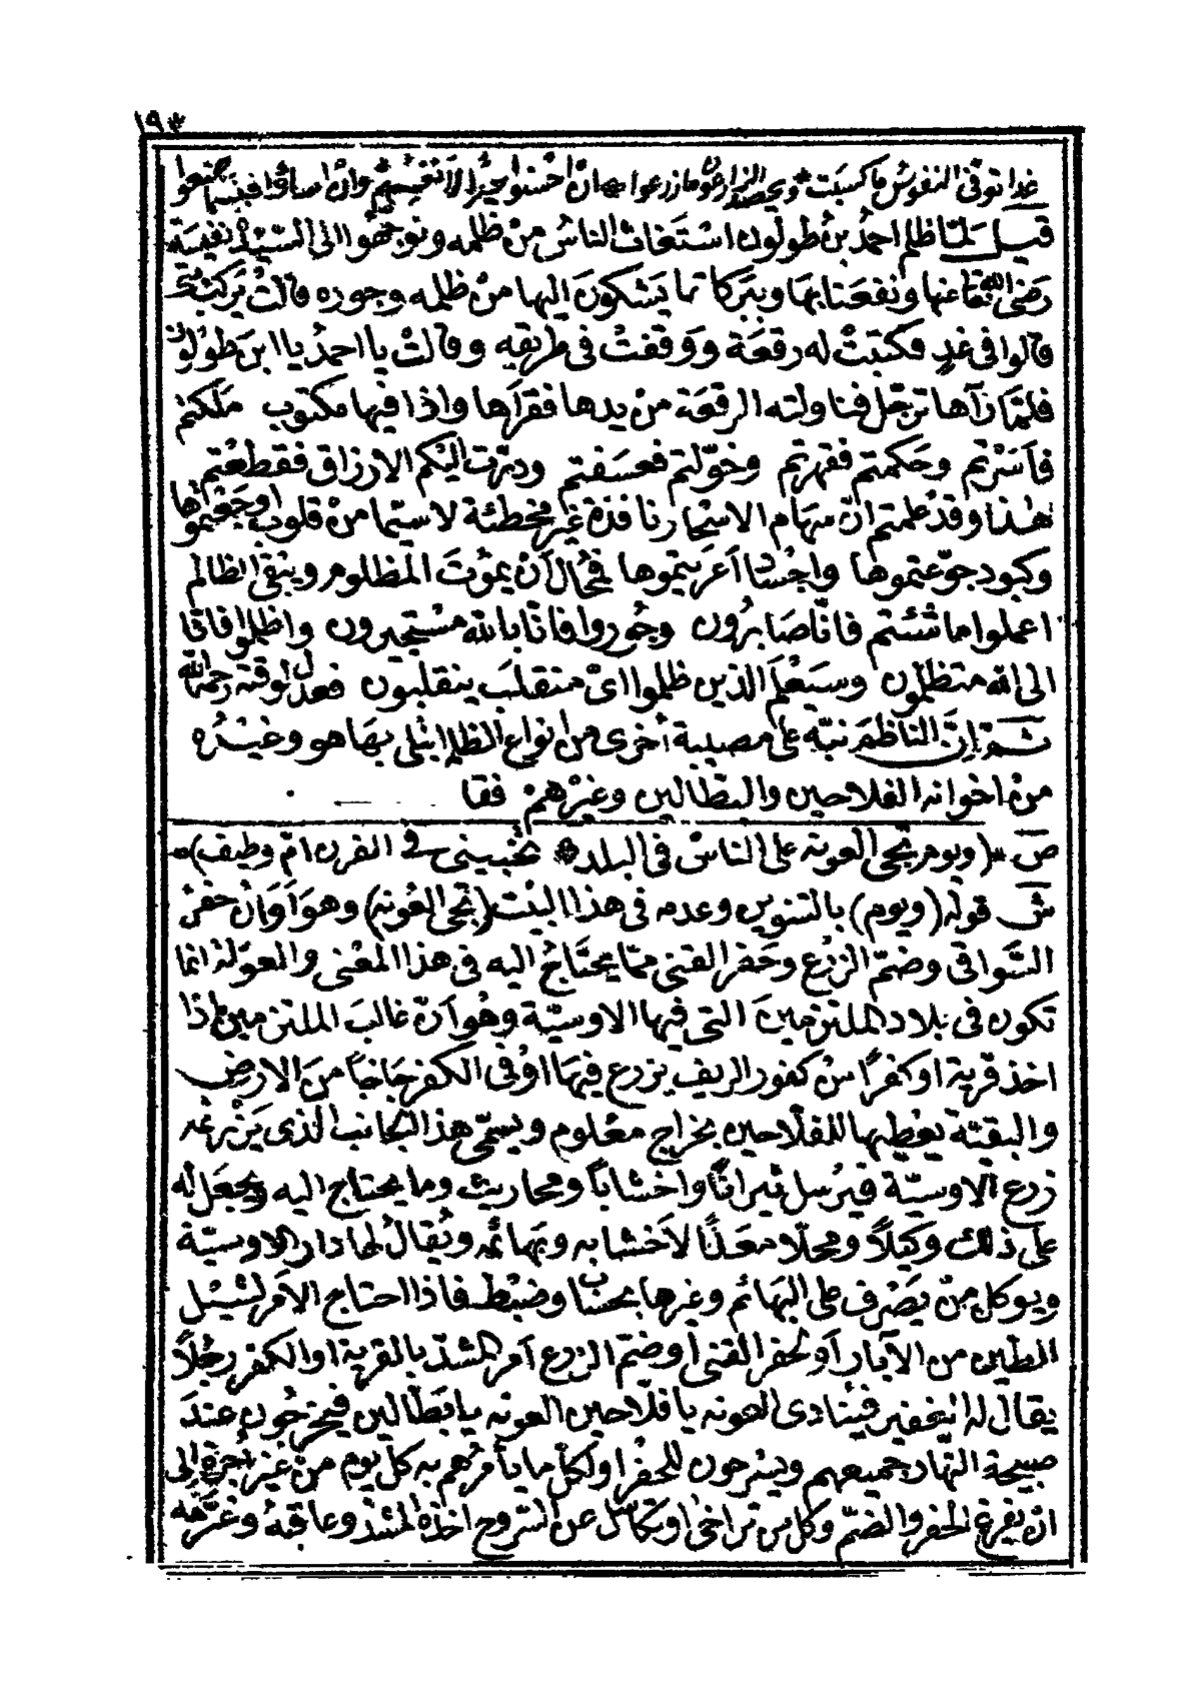 ١٩٣
غدا توفى النفوس ما كسبت * ويحصد الزارعون ما زرعوا * ان احسنوا احسنوا لانفسهم * وان اساؤا فبئس ما صنعوا
قيل لما ظلم احمد بن طولون استغاث الناس من ظلمه وتوجهوا الى السيدة نفيسة
رضى الله تعا عنها ونفعنا بها وببركاتها يشكون اليها من ظلمه وجوره قالت متى يركب
قالوا فى غد فكتبت له رقعة ووقفت فى طريقه وقالت يا احمد يا ابن طولون
فلما رآها ترجل فناولته الرقعة من يدها فقرأها واذا فيها مكتوب ملكتم
فاسرتم وحكمتم فقهرتم وخولتم فعسفتم ودرّت اليكم الارزاق فقطعتم
هذا وقد علمتم ان سهام الاسحار نافذة غير مخطئة لاسيما من قلوب اوجعتموها
وكبود جوعتموها واجساد اعريتموها فمحال أن يموت المظلوم ويبقى الظالم
اعملوا ما شئتم فانا صابرون وجوروا فانا بالله مستجيرون واظلموا فانا
الى الله متظلمون وسيعلم الذين ظلموا اى منقلب ينقلبون فعدل لوقته رحمه الله
ثم ان الناظم نبه على مصيبة أخرى من انواع الظلم ابتلى بها هو وغيره
من اخوانه الفلاحين والبطالين وغيرهم فقا
ص * (ويوم تجى العونه على الناس فى البلد * تخبينى فى الفرن ام وطيف) *
ش قوله (ويوم) بالتنوين وعدمه فى هذا البيت (تجى العونه) وهو أوان حفر
السواقى وضم الزرع وحفر القنى مما يحتاج اليه فى هذا المعنى والعونة انما
تكون فى بلاد الملتزمين التى فيها الاوسيّة وهو أن غالب الملتزمين اذا
اخذ قرية او كفرا من كفور الريف يزرع فيها او فى الكفر جانبا من الارض
والبقيّة يعطيها للفلاحين بخراج معلوم ويسمى هذا الجانب الذى يزرعه
زرع الاوسيّة فيرسل ثيرانًا واخشابًا ومحاريث وما يحتاج اليه ويجعل له
على ذلك وكيلاً ومحلّا معدًّا لأخشابه وبهائمه ويقال لها دار الاوسيّة
ويوكل من يصرف على البهائم وغيرها بحساب وضبط فاذا احتاج الأمر لشيل
الطين من الآبار أو لحفر القنى او ضم الزرع أمر المشد بالقرية او الكفر رجلاً
يقال له الخفير فينادى العونه يا فلاحين العونه يا بطالين فيخرجون عند
صبيحة النهار جميعهم ويسرحون للحفر او لكل ما يأمرهم به كل يوم من غير اجرة الى
ان يفرغ الحفر والضم وكل من تراخى او تكاسل عن السروح اخذه المشد وعاقبه وغرّمه